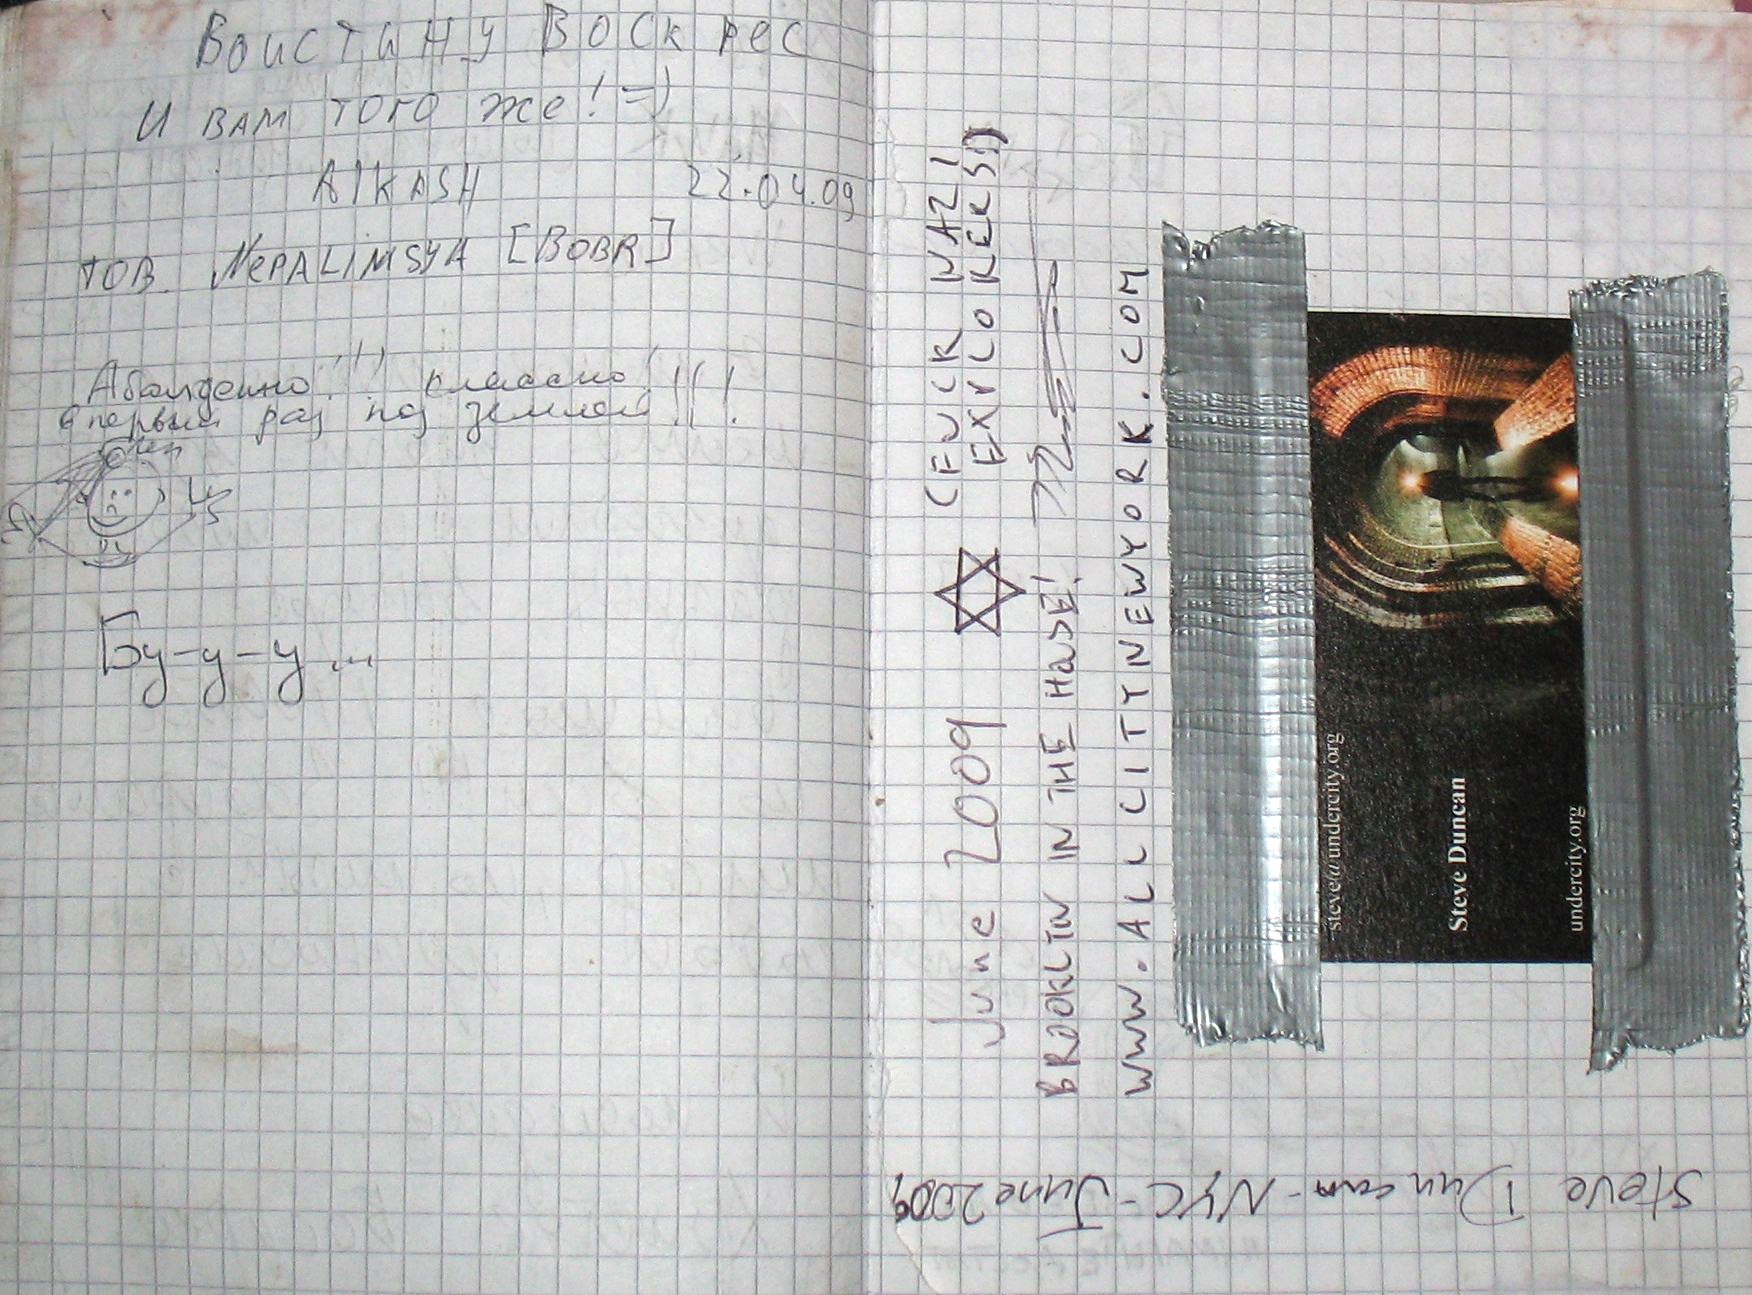 Воистину Воскрес
И вам того же! =)
AlKASH 22.04.09
тов. NePALIMSYA [BOBR]
Абалденно!!! классно!
в первый раз под землей!!!!
Бу-у-у...
June 2009 (FUCK NAZI
EXPLORERS!)
BROOKLYN IN THE HOUSE!
WWW.ALLCITYNEWYORK.COM
steve@undercity.org
Steve Duncan
undercity.org
Steve Duncan - NYC - June 2009